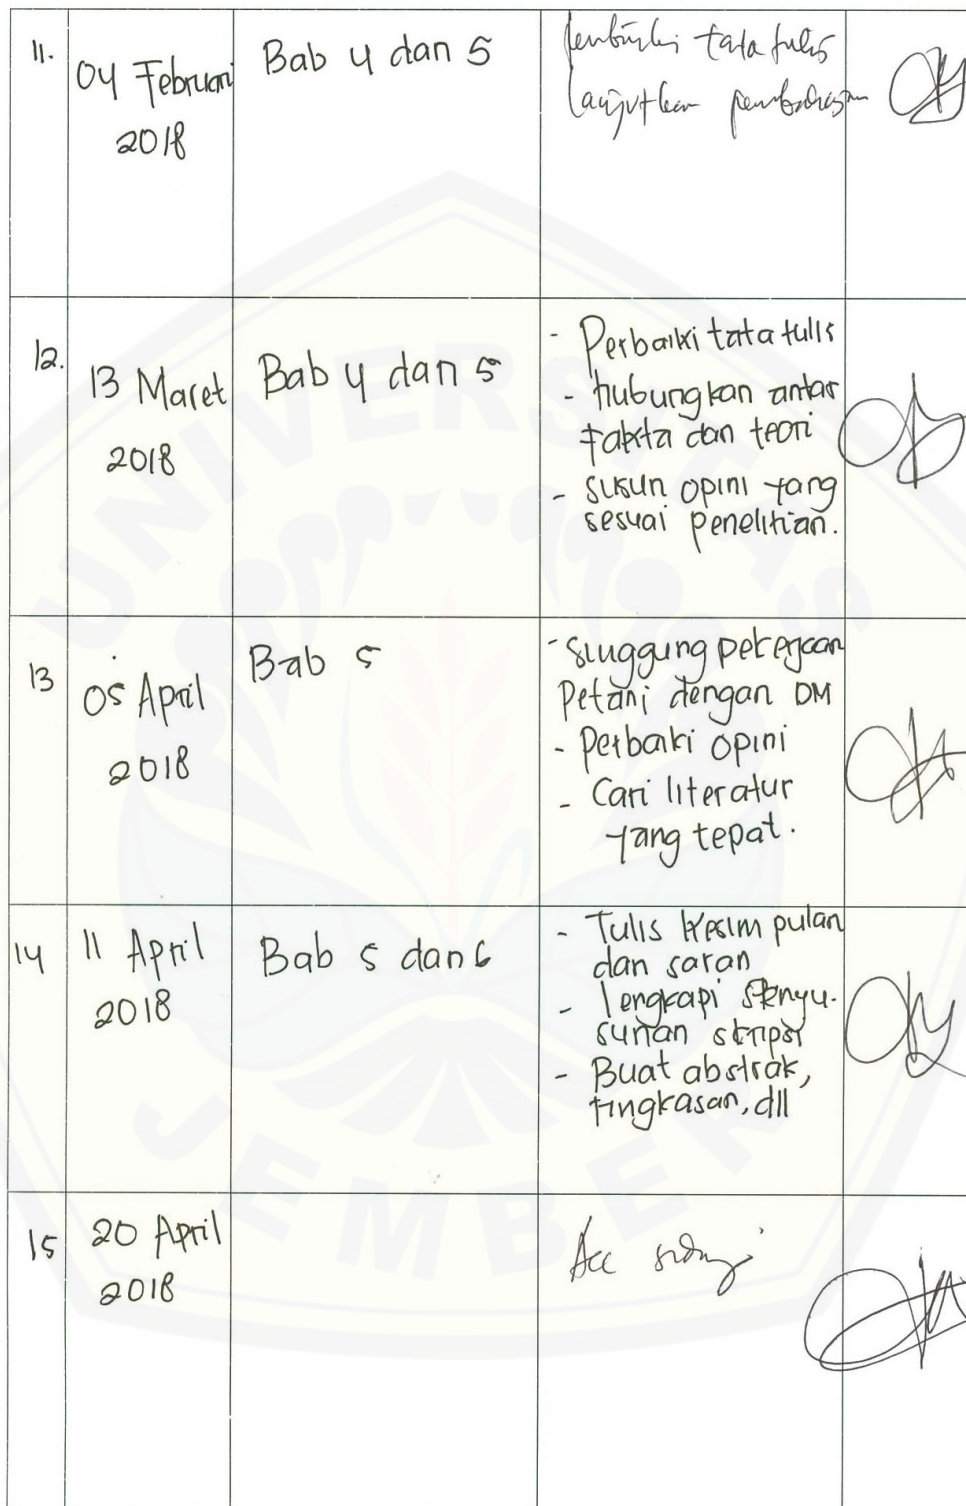 11.
04 Februari
2018
Bab 4 dan 5
tata tulis
lanjutkan pembahasan
12.
13 Maret
2018
Bab 4 dan 5
- Perbaiki tata tulis
- hubungkan antar
fakta dan teori
- susun opini yang
sesuai penelitian.
13
05 April
2018
Bab 5
- Singgung pekerjaan
Petani dengan DM
- Perbaiki opini
- Cari literatur
yang tepat.
14
11 April
2018
Bab 5 dan 6
- Tulis kesimpulan
dan saran
- lengkapi
sunan skripsi
- Buat abstrak,
ringkasan, dll
15
20 April
2018
Acc sidang
UNIVERSITAS
JEMBER